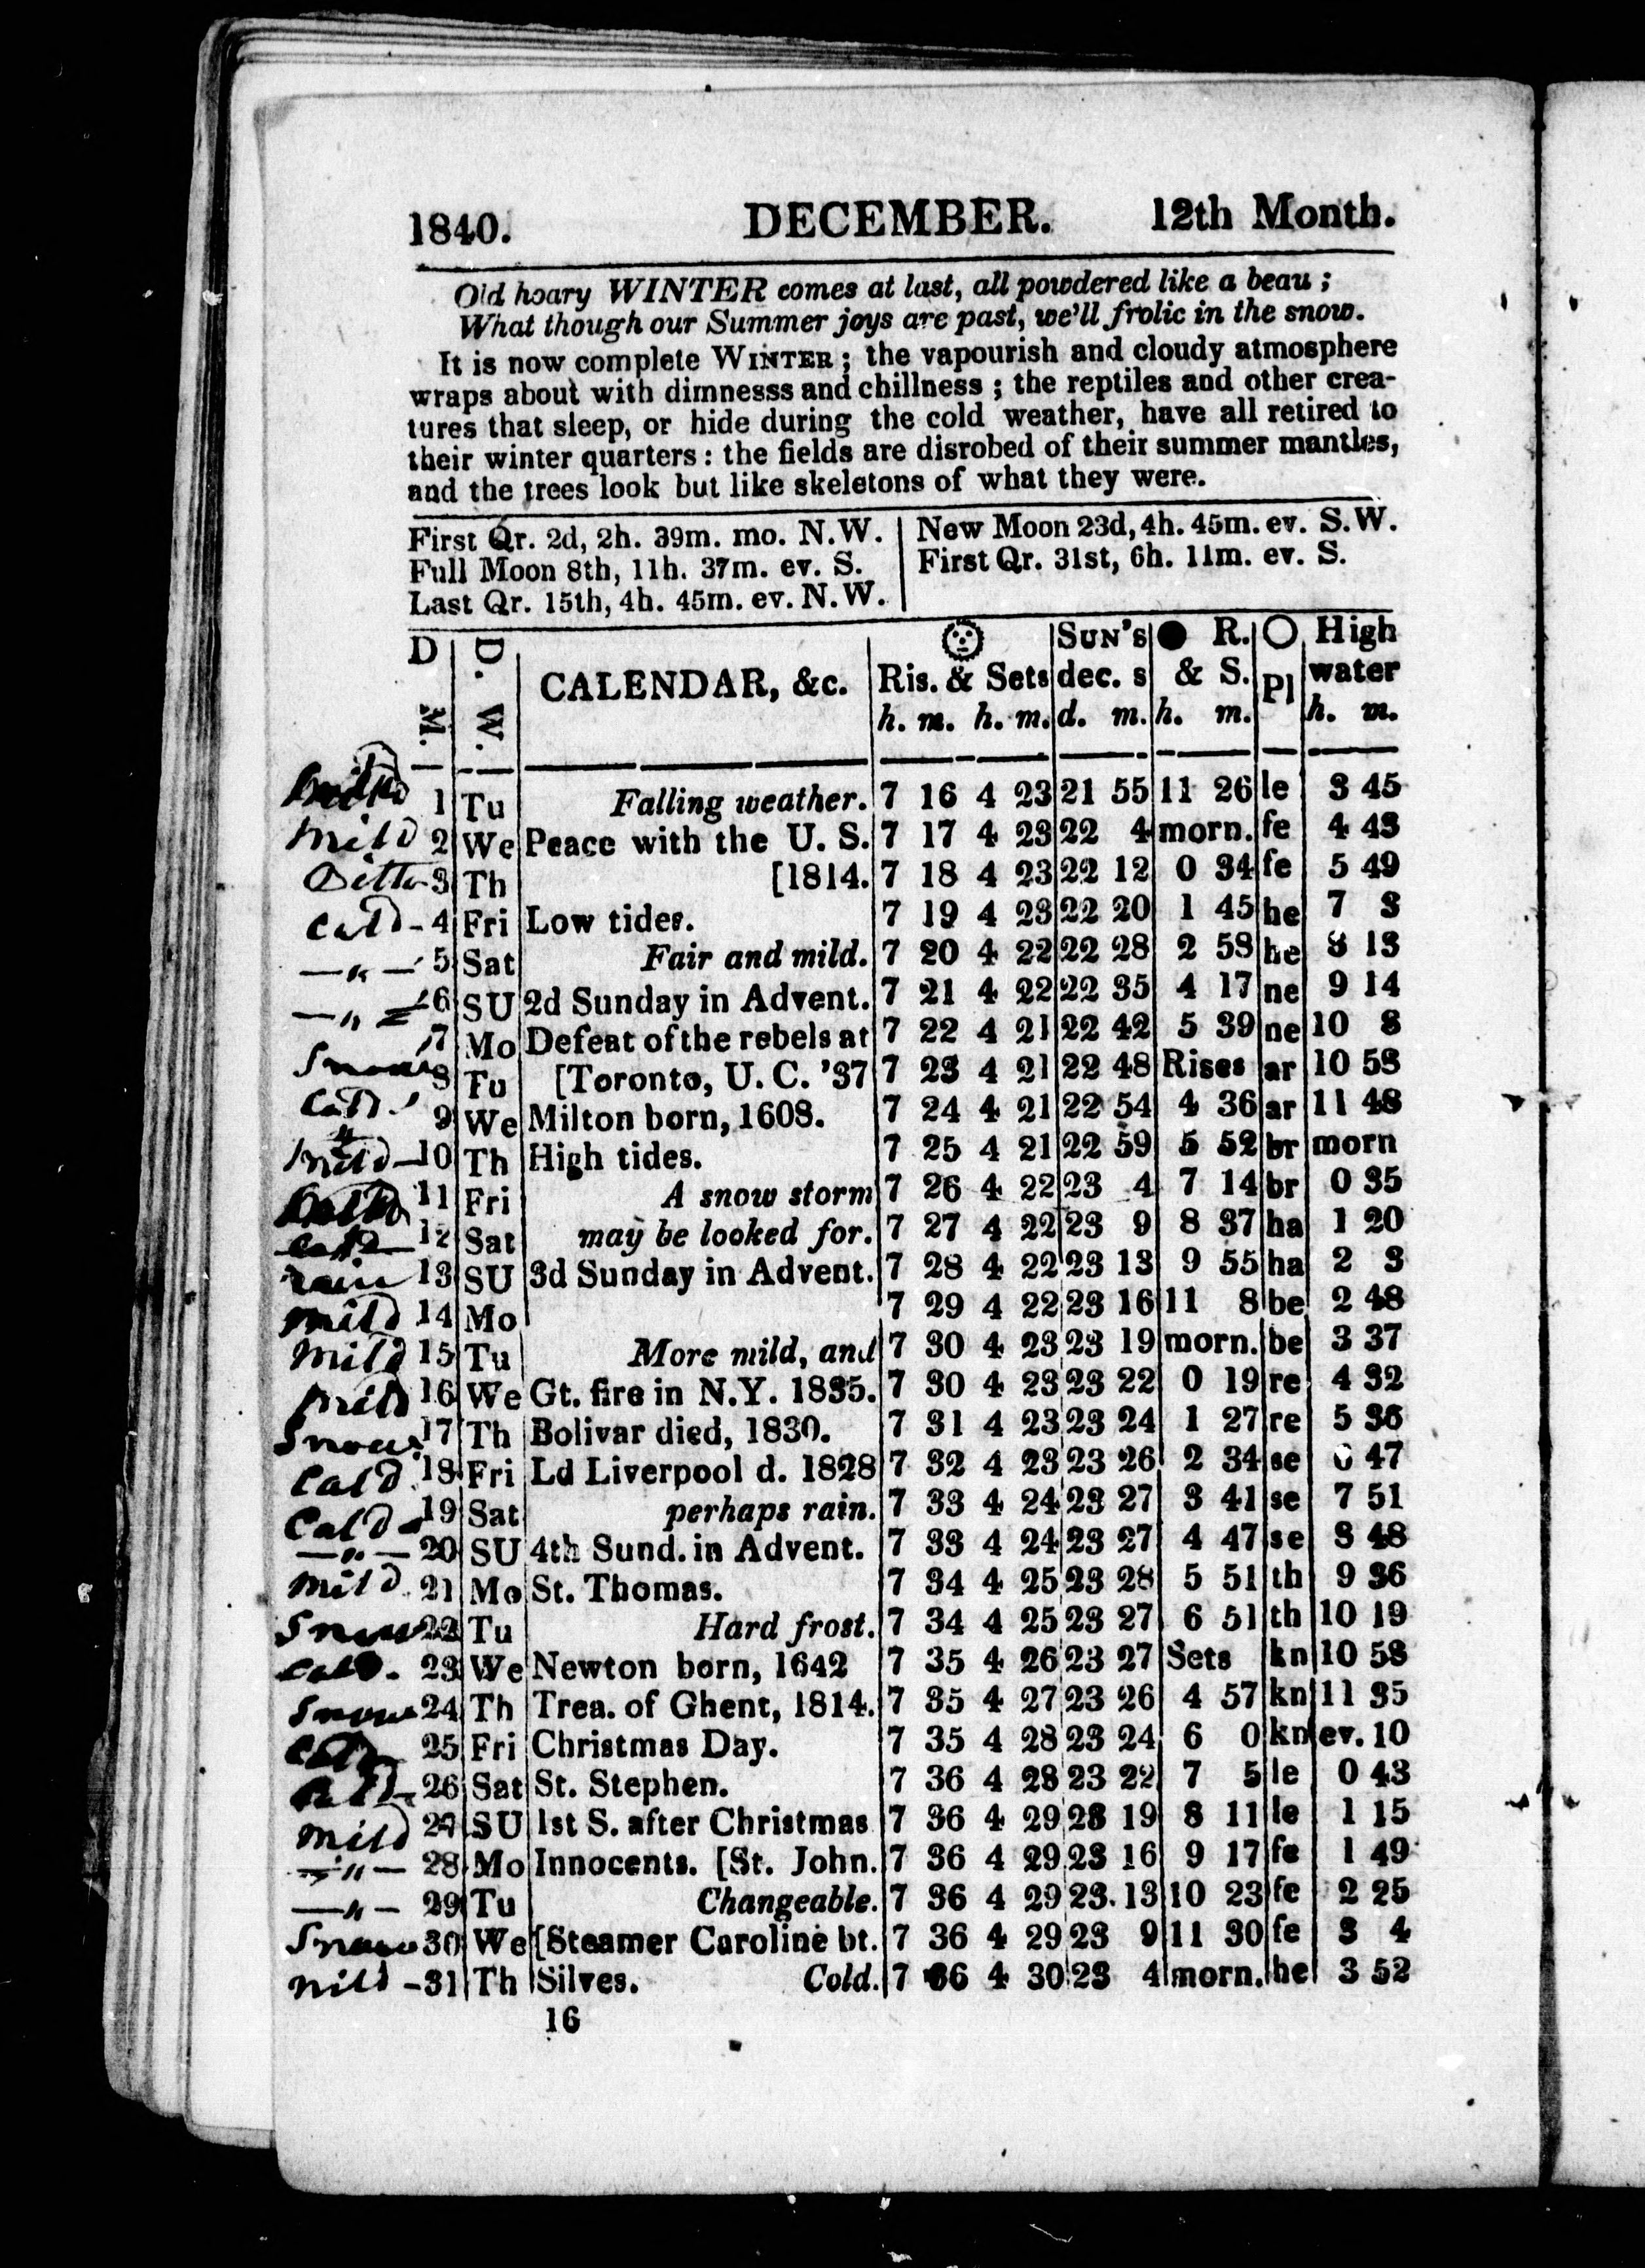 1840. DECEMBER. 12th Month.
Old hoary WINTER comes at last, all powdered like a beau ;
What though our Summer joys are past, we'll frolic in the snow.
It is now complete WINTER ; the vapourish and cloudy atmosphere
wraps about with dimnesss and chillness ; the reptiles and other crea-
tures that sleep, or hide during the cold weather, have all retired to
their winter quarters : the fields are disrobed of their summer mantles,
and the trees look but like skeletons of what they were.
First Qr. 2d, 2h. 39m. mo. N.W. | New Moon 23d, 4h. 45m. ev. S.W.
Full Moon 8th, 11h. 37m. ev. S. | First Qr. 31st, 6h. 11m. ev. S.
Last Qr. 15th, 4h. 45m. ev. N.W.
D | D. | | | SUN'S | ● R. | ○ | High
M. | W. | CALENDAR, &c. | Ris. & Sets | dec. s | & S. | Pl | water
h. m. h. m. | d. m. | h. m. | h. m.
1 Tu Falling weather. 7 16 4 23 21 55 11 26 le 3 45
mild 2 We Peace with the U. S. 7 17 4 23 22 4 morn. fe 4 43
Ditto 3 Th [1814. 7 18 4 23 22 12 0 34 fe 5 49
Cold - 4 Fri Low tides. 7 19 4 23 22 20 1 45 he 7 3
— " — 5 Sat Fair and mild. 7 20 4 22 22 28 2 58 he 8 13
— " — 6 SU 2d Sunday in Advent. 7 21 4 22 22 35 4 17 ne 9 14
7 Mo Defeat of the rebels at 7 22 4 21 22 42 5 39 ne 10 8
Snow 8 Tu [Toronto, U. C. '37 7 23 4 21 22 48 Rises ar 10 58
Cold 9 We Milton born, 1608. 7 24 4 21 22 54 4 36 ar 11 48
mild — 10 Th High tides. 7 25 4 21 22 59 5 52 br morn
11 Fri A snow storm 7 26 4 22 23 4 7 14 br 0 35
12 Sat may be looked for. 7 27 4 22 23 9 8 37 ha 1 20
rain 13 SU 3d Sunday in Advent. 7 28 4 22 23 13 9 55 ha 2 3
mild 14 Mo 7 29 4 22 23 16 11 8 be 2 48
mild 15 Tu More mild, and 7 30 4 23 23 19 morn. be 3 37
mild 16 We Gt. fire in N.Y. 1835. 7 30 4 23 23 22 0 19 re 4 32
Snow 17 Th Bolivar died, 1830. 7 31 4 23 23 24 1 27 re 5 36
Cald 18 Fri Ld Liverpool d. 1828 7 32 4 23 23 26 2 34 se 6 47
Cald 19 Sat perhaps rain. 7 33 4 24 23 27 3 41 se 7 51
— " — 20 SU 4th Sund. in Advent. 7 33 4 24 23 27 4 47 se 8 48
mild 21 Mo St. Thomas. 7 34 4 25 23 28 5 51 th 9 36
Snow 22 Tu Hard frost. 7 34 4 25 23 27 6 51 th 10 19
Cald. 23 We Newton born, 1642 7 35 4 26 23 27 Sets kn 10 58
Snow 24 Th Trea. of Ghent, 1814. 7 35 4 27 23 26 4 57 kn 11 35
25 Fri Christmas Day. 7 35 4 28 23 24 6 0 kn ev. 10
26 Sat St. Stephen. 7 36 4 28 23 22 7 5 le 0 43
mild 27 SU 1st S. after Christmas 7 36 4 29 23 19 8 11 le 1 15
— " — 28 Mo Innocents. [St. John. 7 36 4 29 23 16 9 17 fe 1 49
— " — 29 Tu Changeable. 7 36 4 29 23 13 10 23 fe 2 25
Snow 30 We [Steamer Caroline bt. 7 36 4 29 23 9 11 30 fe 3 4
mild - 31 Th Silves. Cold. 7 36 4 30 23 4 morn. he 3 52
16